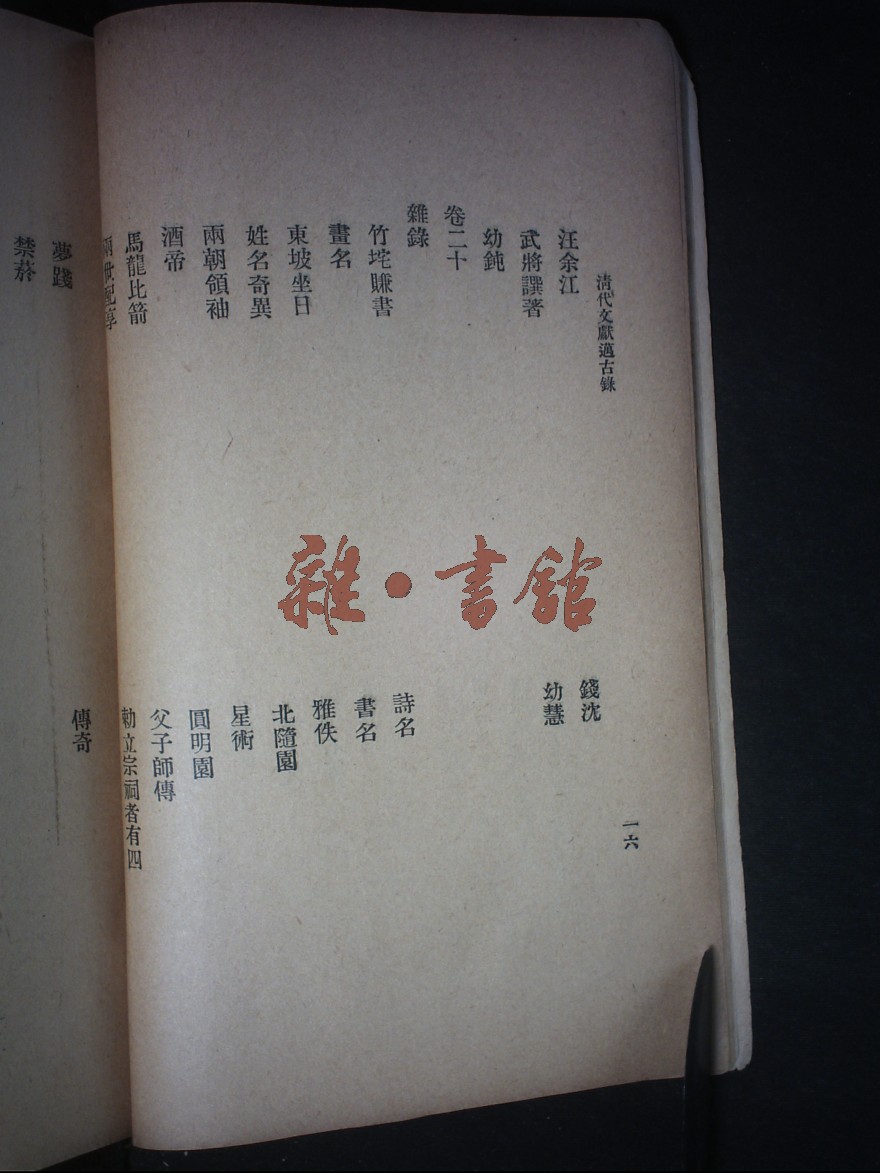 清代文獻邁古錄
一六
汪余江
錢沈
武將譔著
幼慧
幼鈍
卷二十
雜錄
竹垞賺書
詩名
畫名
書名
東坡坐日
雅佚
姓名奇異
北隨園
兩朝領袖
星術
酒帝
圓明園
馬龍比箭
父子師傳
兩世配享
勅立宗祠者有四
夢踐
傳奇
禁菸
雜·書館